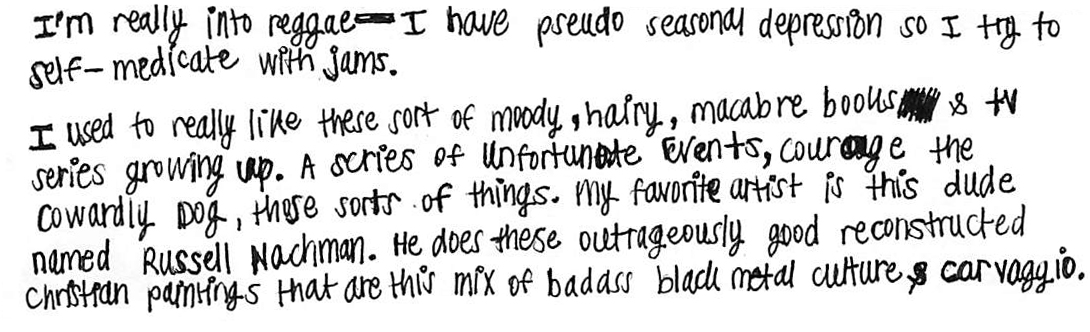 I'm really into reggae—I have pseudo seasonal depression so I try to
self-medicate with jams.
I used to really like these sort of moody, hairy, macabre books & tv
series growing up. A series of Unfortunate Events, courage the
cowardly Dog, those sorts of things. My favorite artist is this dude
named Russell Nachman. He does these outrageously good reconstructed
christian paintings that are this mix of badass black metal culture & carvaggio.